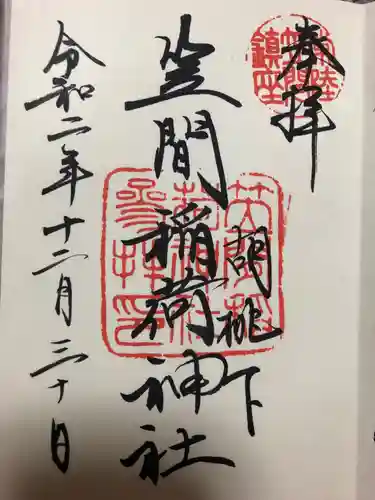 奉拝
常陸
笠間
鎮座
胡桃下
笠間稲荷神社
笠間稲
荷神社
参拝印
令和二年十二月三十日